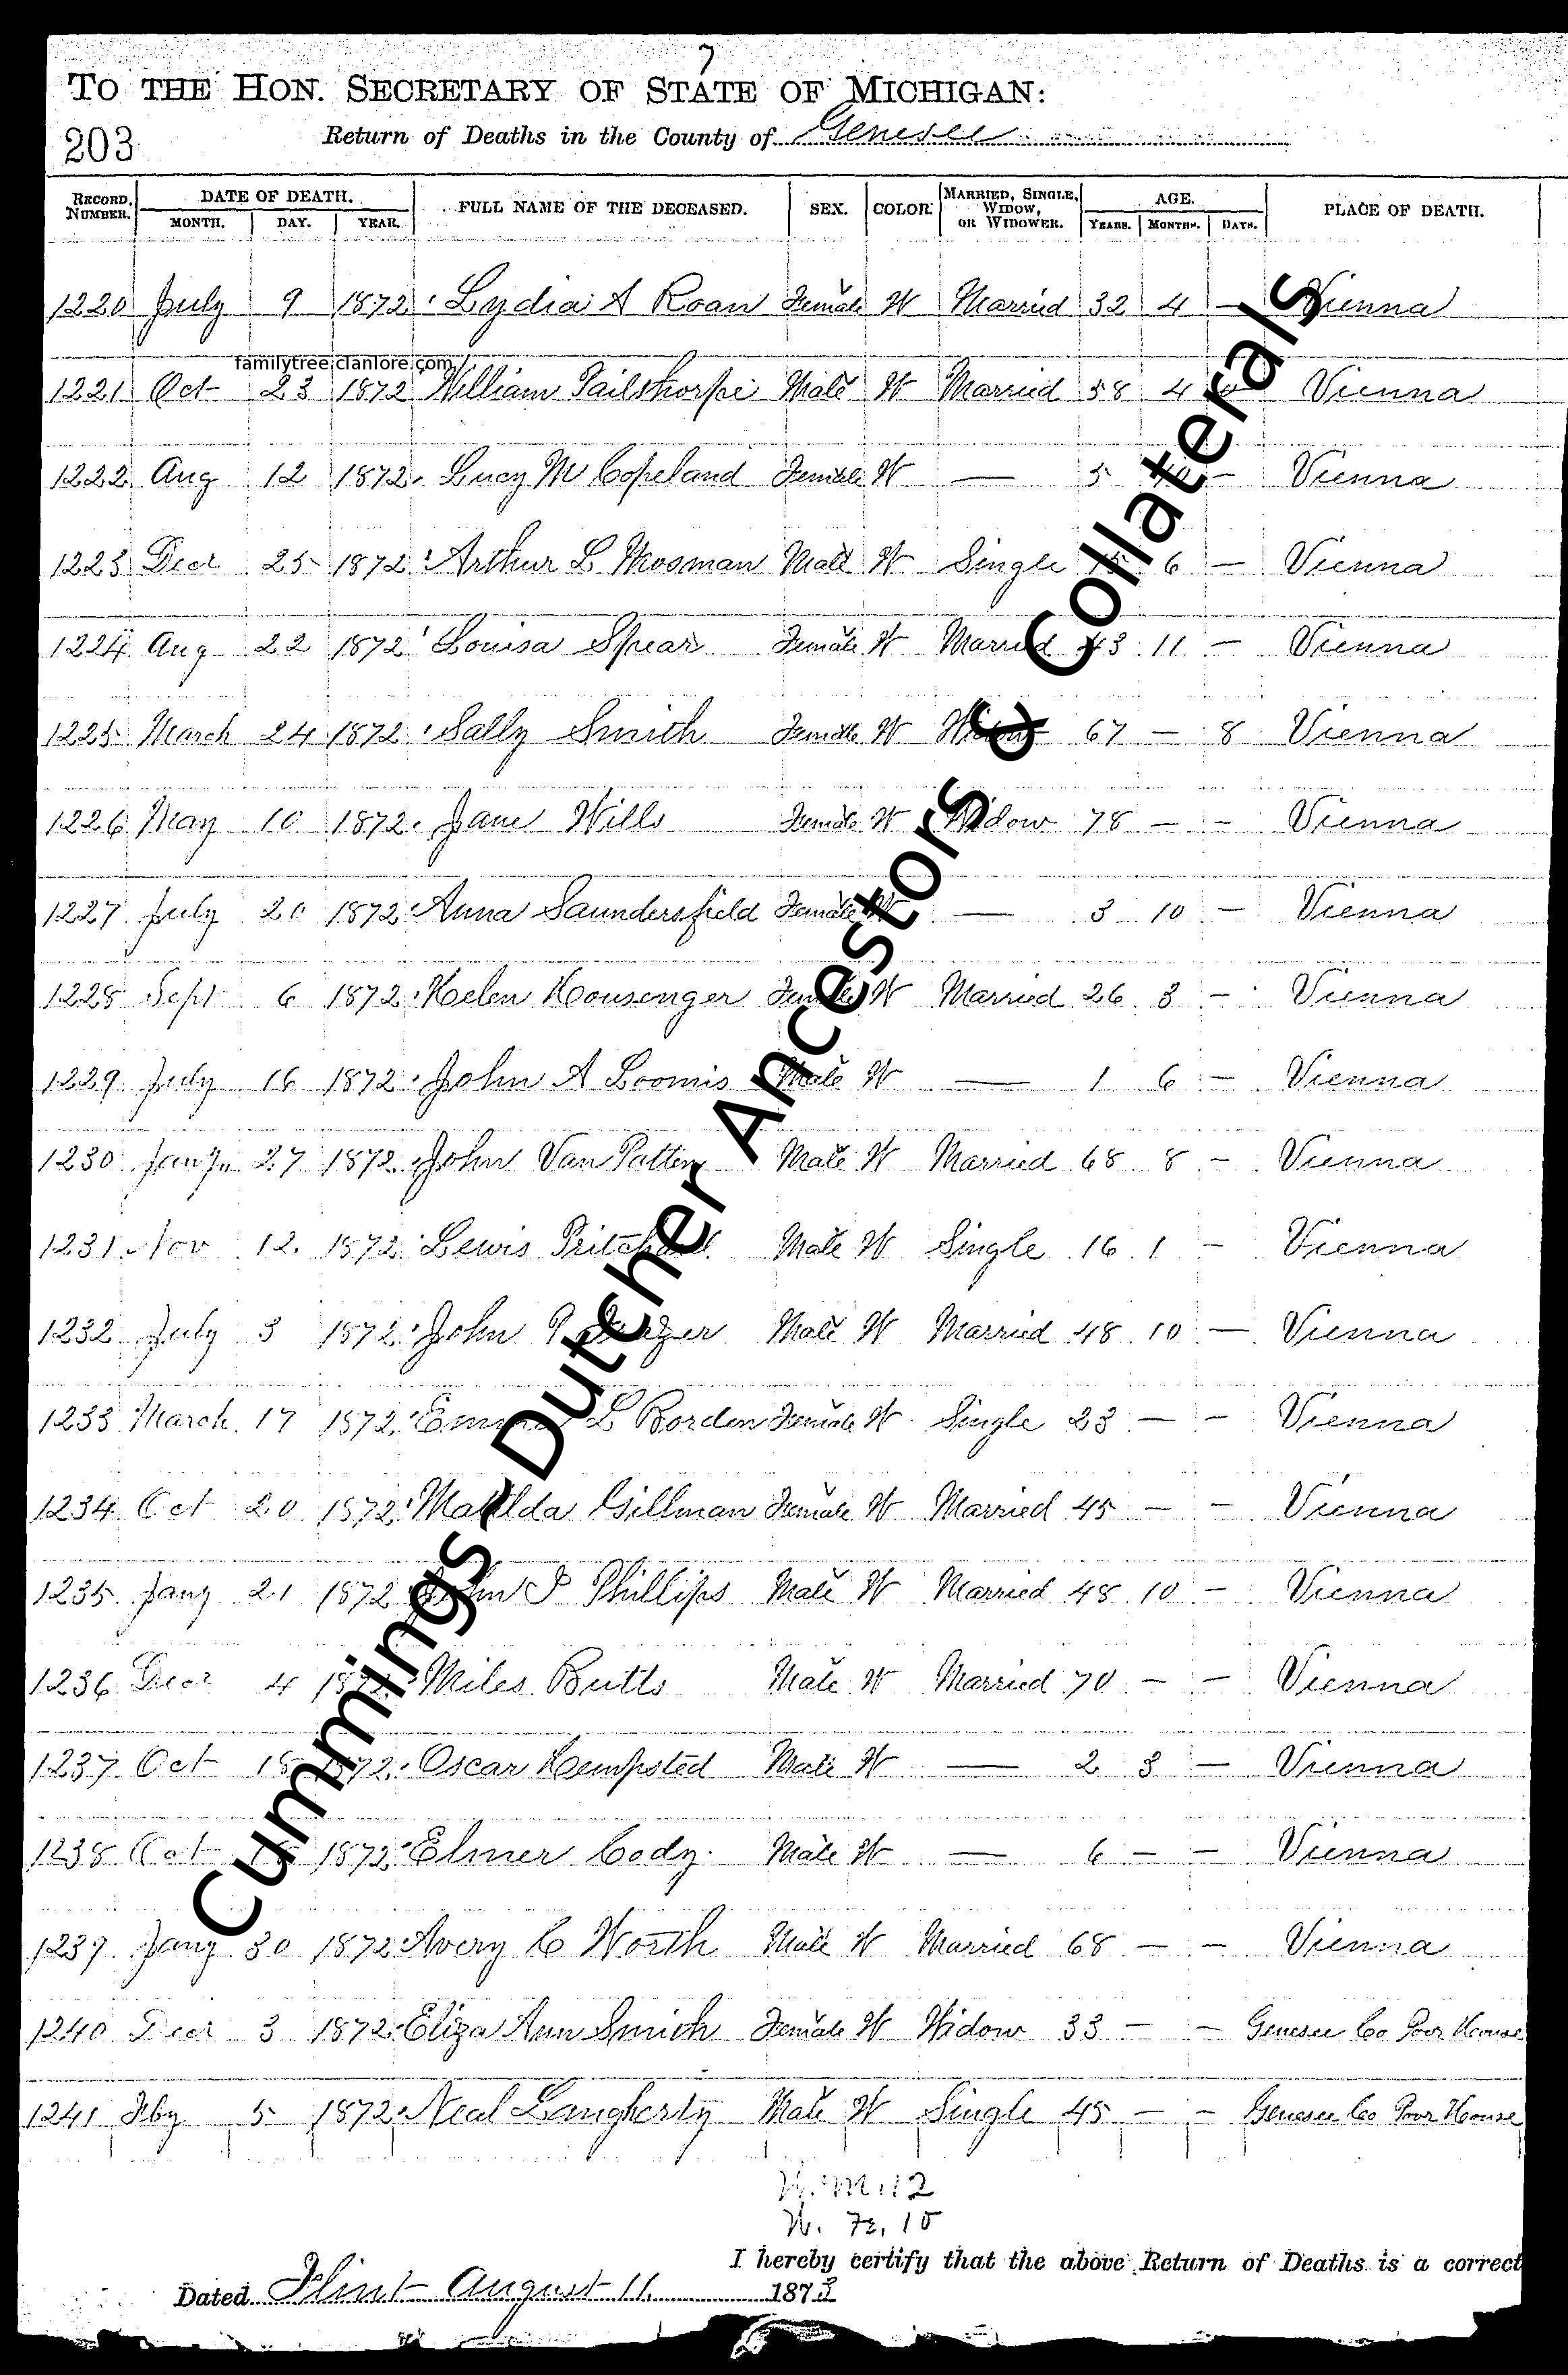 7
TO THE HON. SECRETARY OF STATE OF MICHIGAN:
203 Return of Deaths in the County of Genesee
RECORD NUMBER. DATE OF DEATH. MONTH. DAY. YEAR. FULL NAME OF THE DECEASED. SEX. COLOR. MARRIED, SINGLE, WIDOW, OR WIDOWER. AGE. YEARS. MONTHS. DAYS. PLACE OF DEATH.
1220 July 9 1872 Lydia A Roan Female W Married 32 4 — Vienna
familytree.clanlore.com/
1221 Oct 23 1872 William Pailthorpe Male W Married 58 4 Vienna
1222 Aug 12 1872 Lucy M Copeland Female W — 5 — Vienna
1223 Decr 25 1872 Arthur L Mosman Male W Single 15 6 — Vienna
1224 Aug 22 1872 Louisa Spear Female W Married 43 11 — Vienna
1225 March 24 1872 Sally Smith Female W Widow 67 — 8 Vienna
1226 May 10 1872 Jane Wills Female W Widow 78 — — Vienna
1227 July 20 1872 Anna Saundersfield Female W — 3 10 — Vienna
1228 Sept 6 1872 Helen Housenger Female W Married 26 3 — Vienna
1229 July 16 1872 John A Loomis Male W — 1 6 — Vienna
1230 Jany 27 1872 John Van Patten Male W Married 68 8 — Vienna
1231 Nov 12 1872 Lewis Pritchard Male W Single 16 1 — Vienna
1232 July 3 1872 John Male W Married 48 10 — Vienna
1233 March 17 1872 Emma L Borden Female W Single 23 — — Vienna
1234 Oct 20 1872 Matilda Gillman Female W Married 45 — — Vienna
1235 Jany 21 1872 John P Phillips Male W Married 48 10 — Vienna
1236 Decr 4 1872 Miles Butts Male W Married 70 — — Vienna
1237 Oct 18 1872 Oscar Hempsted Male W — 2 3 — Vienna
1238 Oct 1872 Elmer Cody Male W — 6 — — Vienna
1239 Jany 30 1872 Avery C Worth Male W Married 68 — — Vienna
1240 Decr 3 1872 Eliza Ann Smith Female W Widow 33 — — Genesee Co Poor House
1241 Feby 5 1872 Neal Laugherty Male W Single 45 — — Genesee Co Poor House
Cummings - Dutcher Ancestors & Collaterals
W. M. 12
W. Fe. 10
I hereby certify that the above Return of Deaths is a correct
Dated Flint August 11 1873